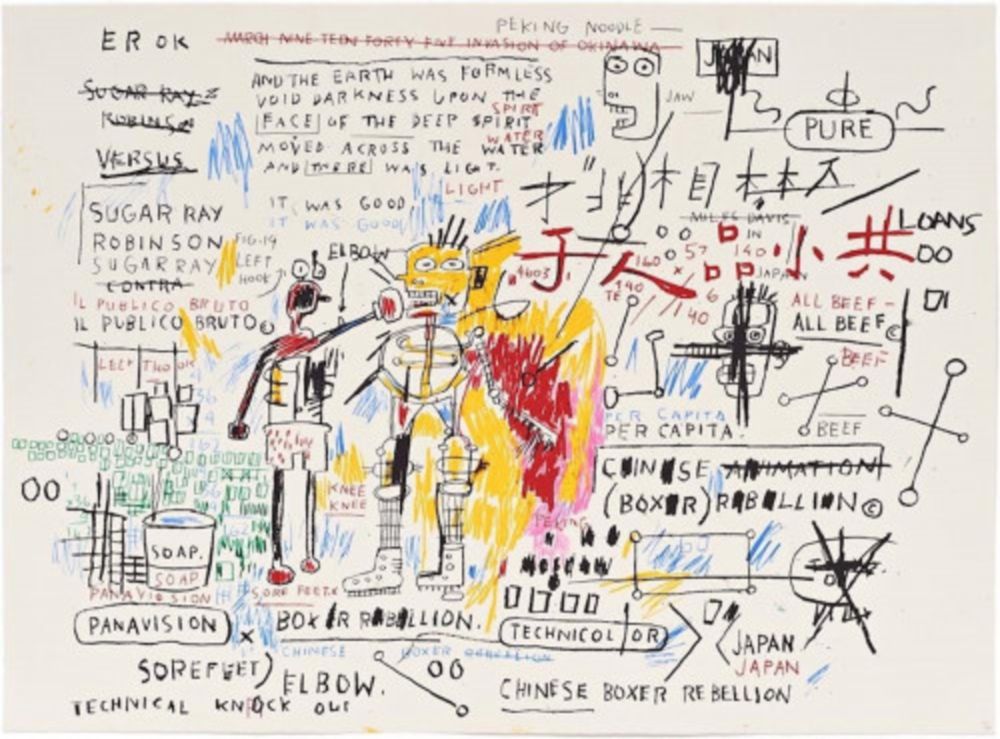 PEKING NOODLE
EROK
MARCH NINETEEN FORTY FIVE INVASION OF OKINAWA
JAPAN
SUGAR RAY
ROBINSON
VERSUS
AND THE EARTH WAS FORMLESS
VOID DARKNESS UPON THE
SPIRIT
FACE OF THE DEEP SPIRIT
WATER
MOVED ACROSS THE WATER
AND THERE WAS LIGHT.
LIGHT
IT WAS GOOD
IT WAS GOOD
JAW
PURE
MILES DAVIS
IN
JAPAN
子人品小共
LOANS
OO
SUGAR RAY
ROBINSON
SUGAR RAY
CONTRA
FIG.19
LEFT
HOOK
ELBOW
IL PUBLICO BRUTO
IL PUBLICO BRUTO©
4603
57
140
160
140
6
40
ALL BEEF-
ALL BEEF©
BEEF
BEEF
PER CAPITA
PER CAPITA.
CHINESE ANIMATION
(BOXER) REBELLION©
OO
KNEE
KNEE
PEKING
MOSCOW
SOAP.
SOAP
PANAVISION
SORE FEET.
PANAVISION
X
BOXER REBELLION.
CHINESE BOXER REBELLION
TECHNICOLOR
JAPAN
JAPAN
SOREFEET)
ELBOW.
OO
CHINESE BOXER REBELLION
TECHNICAL KNOCK OUT